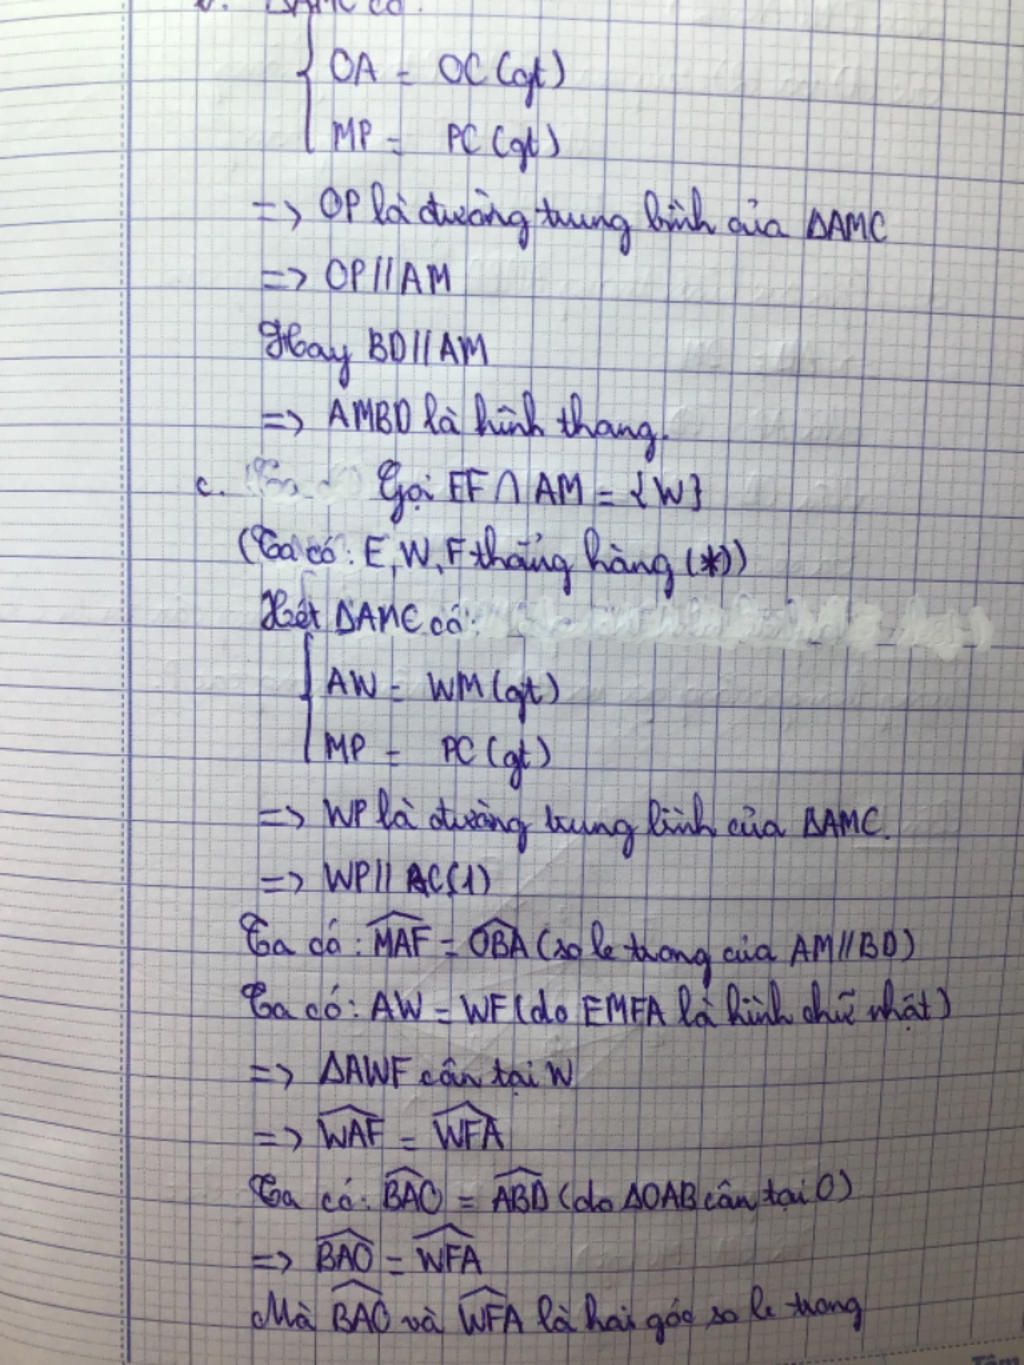 b. ΔAMC có:
{ OA = OC (gt)
MP = PC (gt)
=> OP là đường trung bình của ΔAMC
=> OP // AM
Hay BD // AM
=> AMBD là hình thang.
c. Gọi EF ∩ AM = {W}
(Ta có: E, W, F thẳng hàng (*))
Xét ΔAMC có:
{ AW = WM (gt)
MP = PC (gt)
=> WP là đường trung bình của ΔAMC.
=> WP // AC (1)
Ta có: \widehat{MAF} = \widehat{OBA} (so le trong của AM // BD)
Ta có: AW = WF (do EMFA là hình chữ nhật)
=> ΔAWF cân tại W
=> \widehat{WAF} = \widehat{WFA}
Ta có: \widehat{BAO} = \widehat{ABD} (do ΔOAB cân tại O)
=> \widehat{BAO} = \widehat{WFA}
Mà \widehat{BAO} và \widehat{WFA} là hai góc so le trong